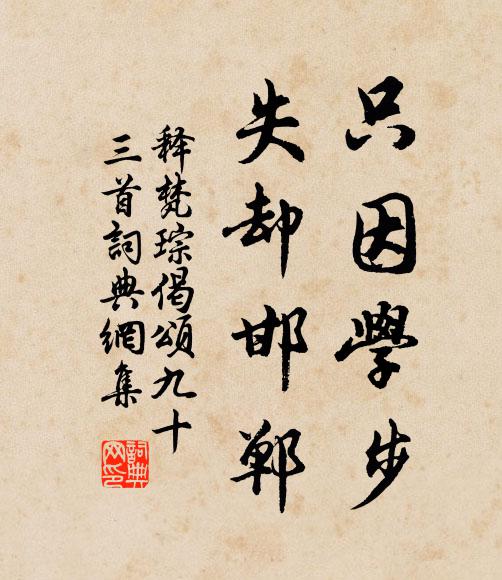 只因學步
失却邯鄲
释梵琮偈頌九十
三首詞典網集
詞典網印